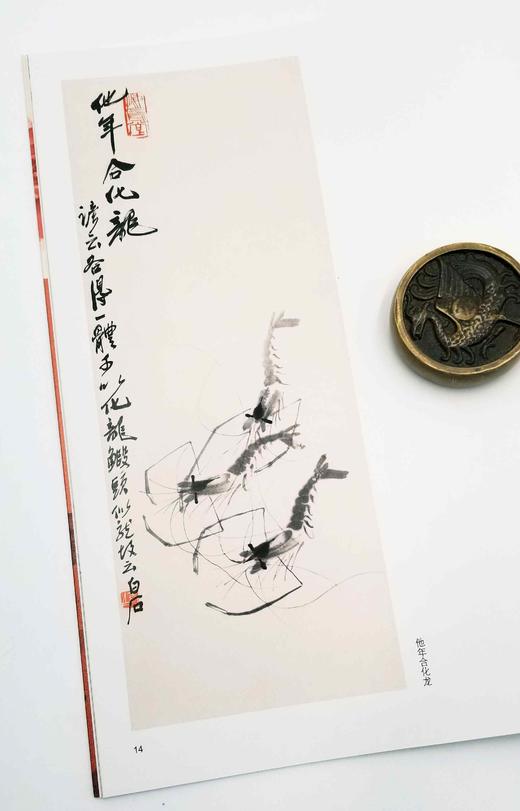 他年合化龍
諺云各得一體可以化龍鰕頭似龍故云白石
他年合化龙
14